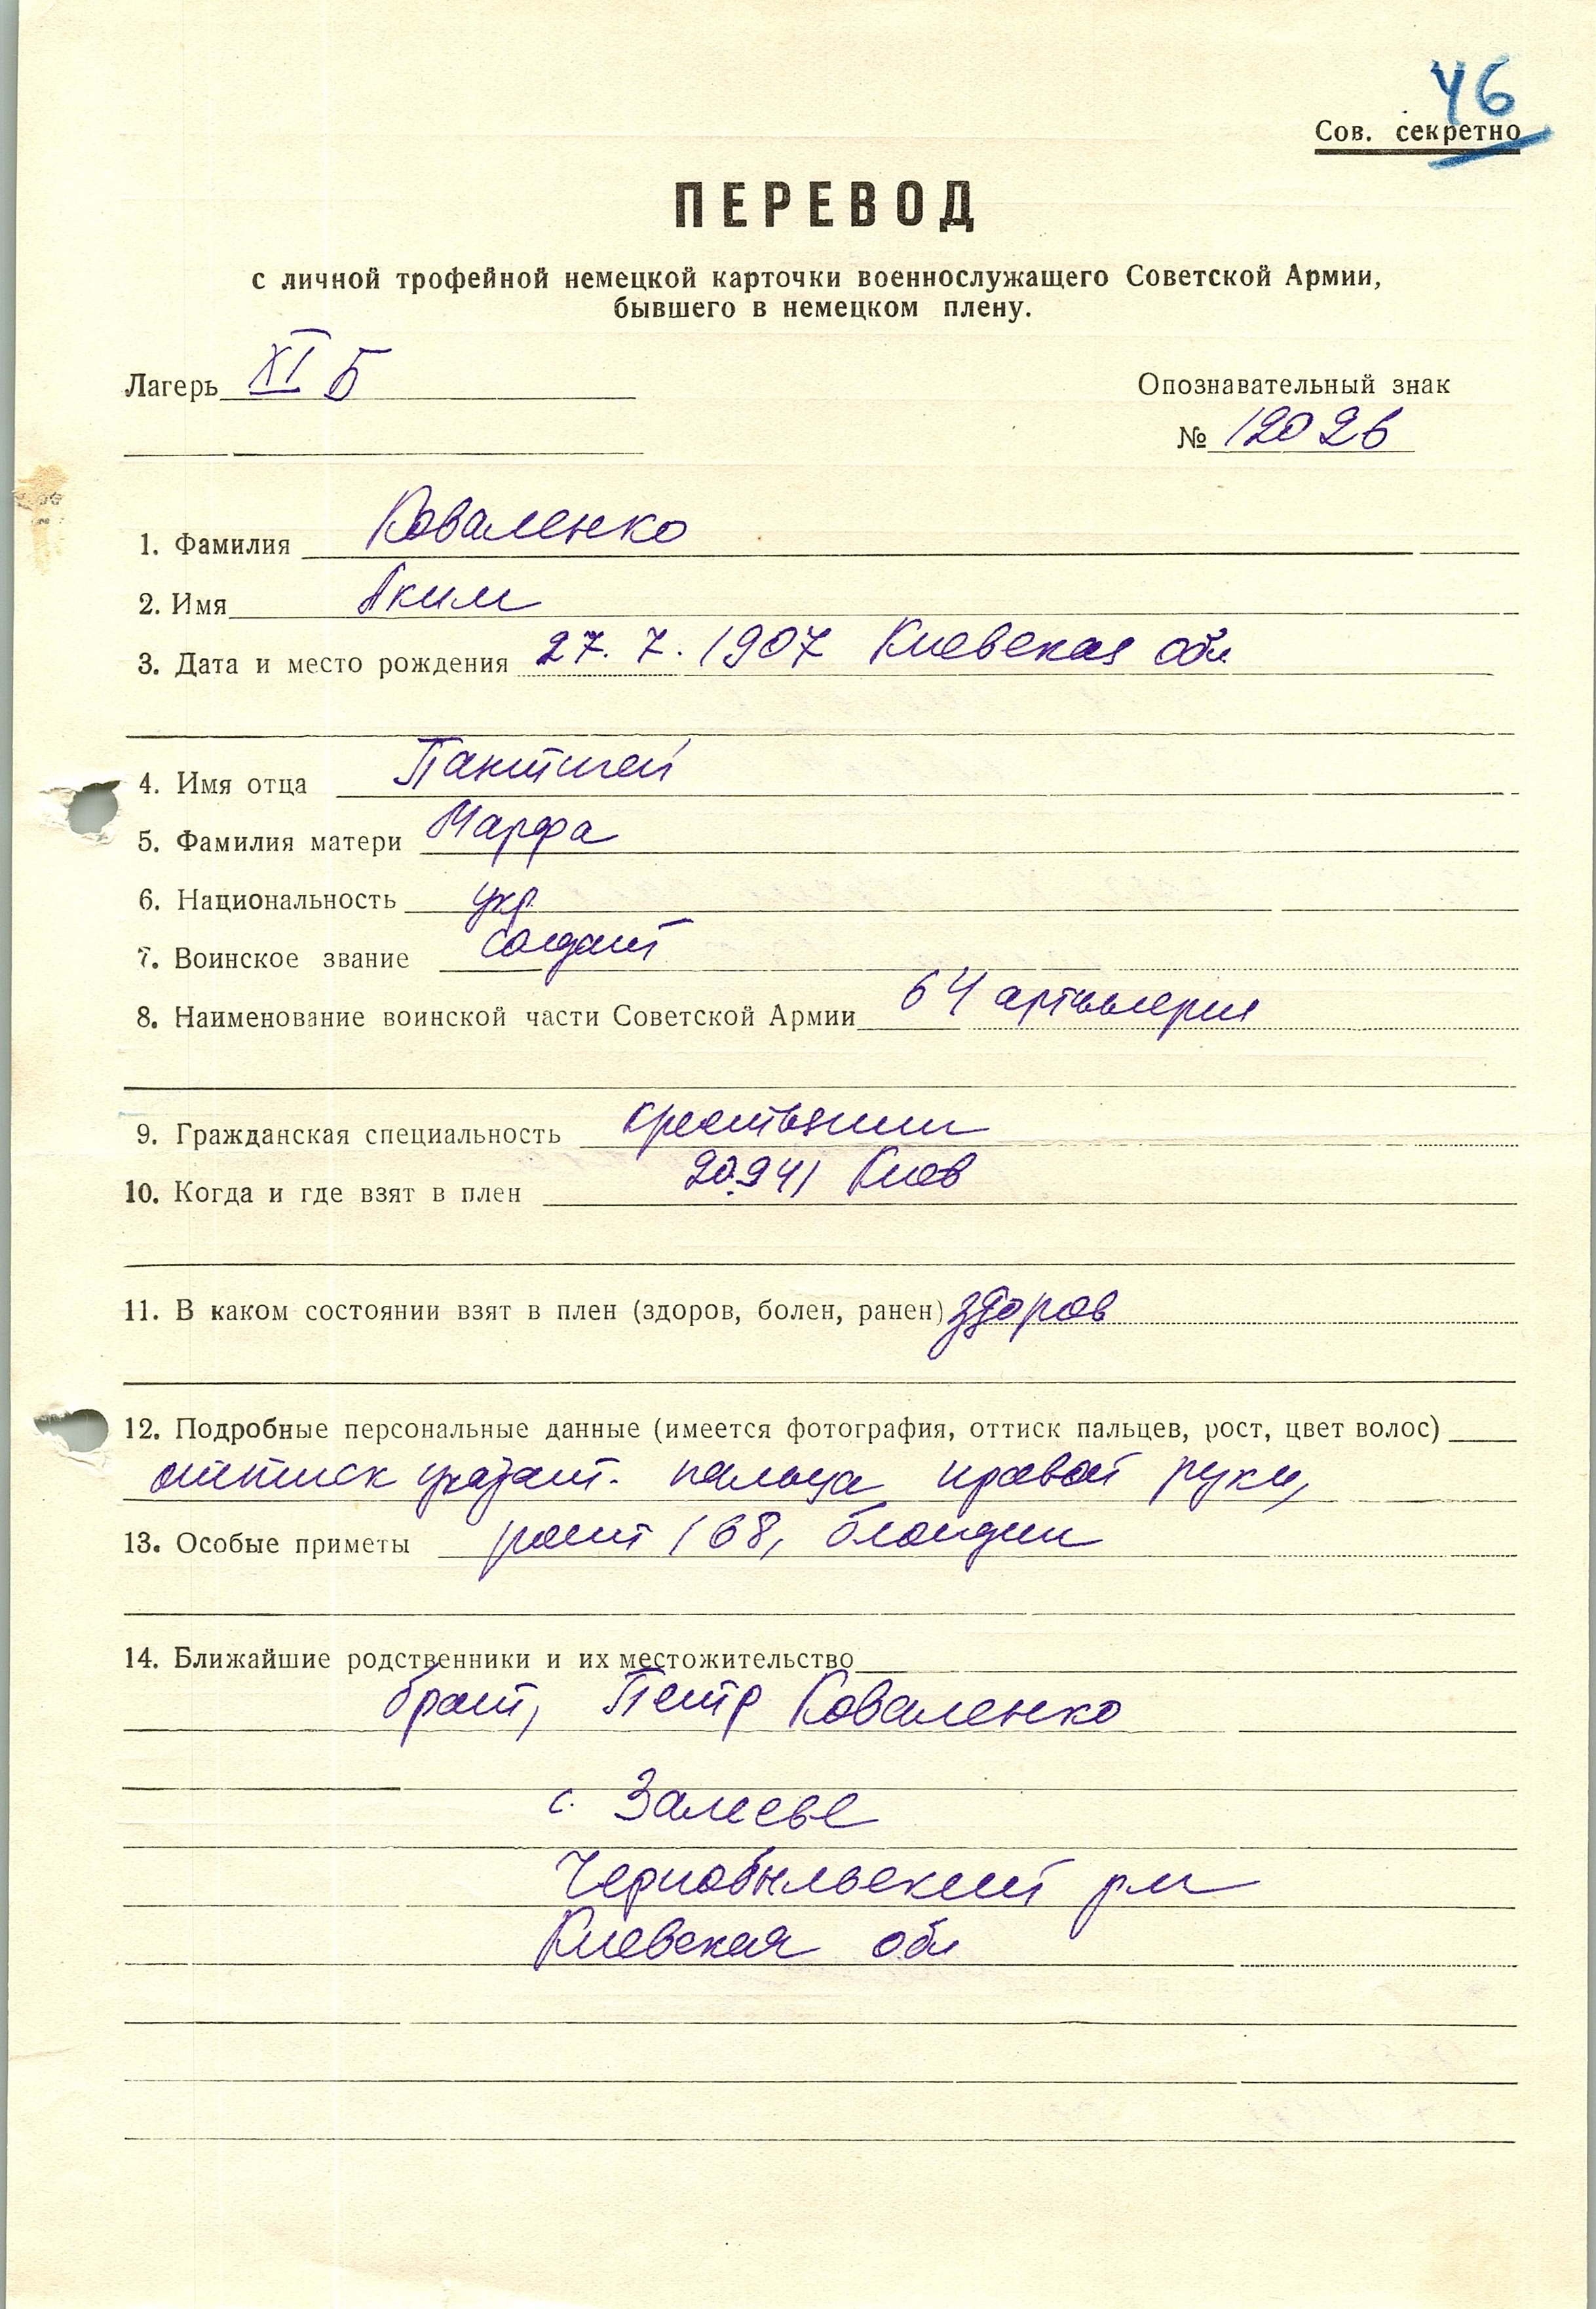 46
Сов. секретно
ПЕРЕВОД
с личной трофейной немецкой карточки военнослужащего Советской Армии,
бывшего в немецком плену.
Лагерь XI Б
Опознавательный знак
№ 12026
1. Фамилия Коваленко
2. Имя Аким
3. Дата и место рождения 27. 7. 1907 Киевская обл
4. Имя отца
5. Фамилия матери Марфа
6. Национальность укр
7. Воинское звание солдат
8. Наименование воинской части Советской Армии 64 артиллерия
9. Гражданская специальность крестьянин
10. Когда и где взят в плен 20.9 41 Киев
11. В каком состоянии взят в плен (здоров, болен, ранен) здоров
12. Подробные персональные данные (имеется фотография, оттиск пальцев, рост, цвет волос)
оттиск указат. пальца правой руки,
13. Особые приметы рост 168, блондин
14. Ближайшие родственники и их местожительство
брат, Петр Коваленко
с. Залесье
Чернобыльский р-н
Киевская обл